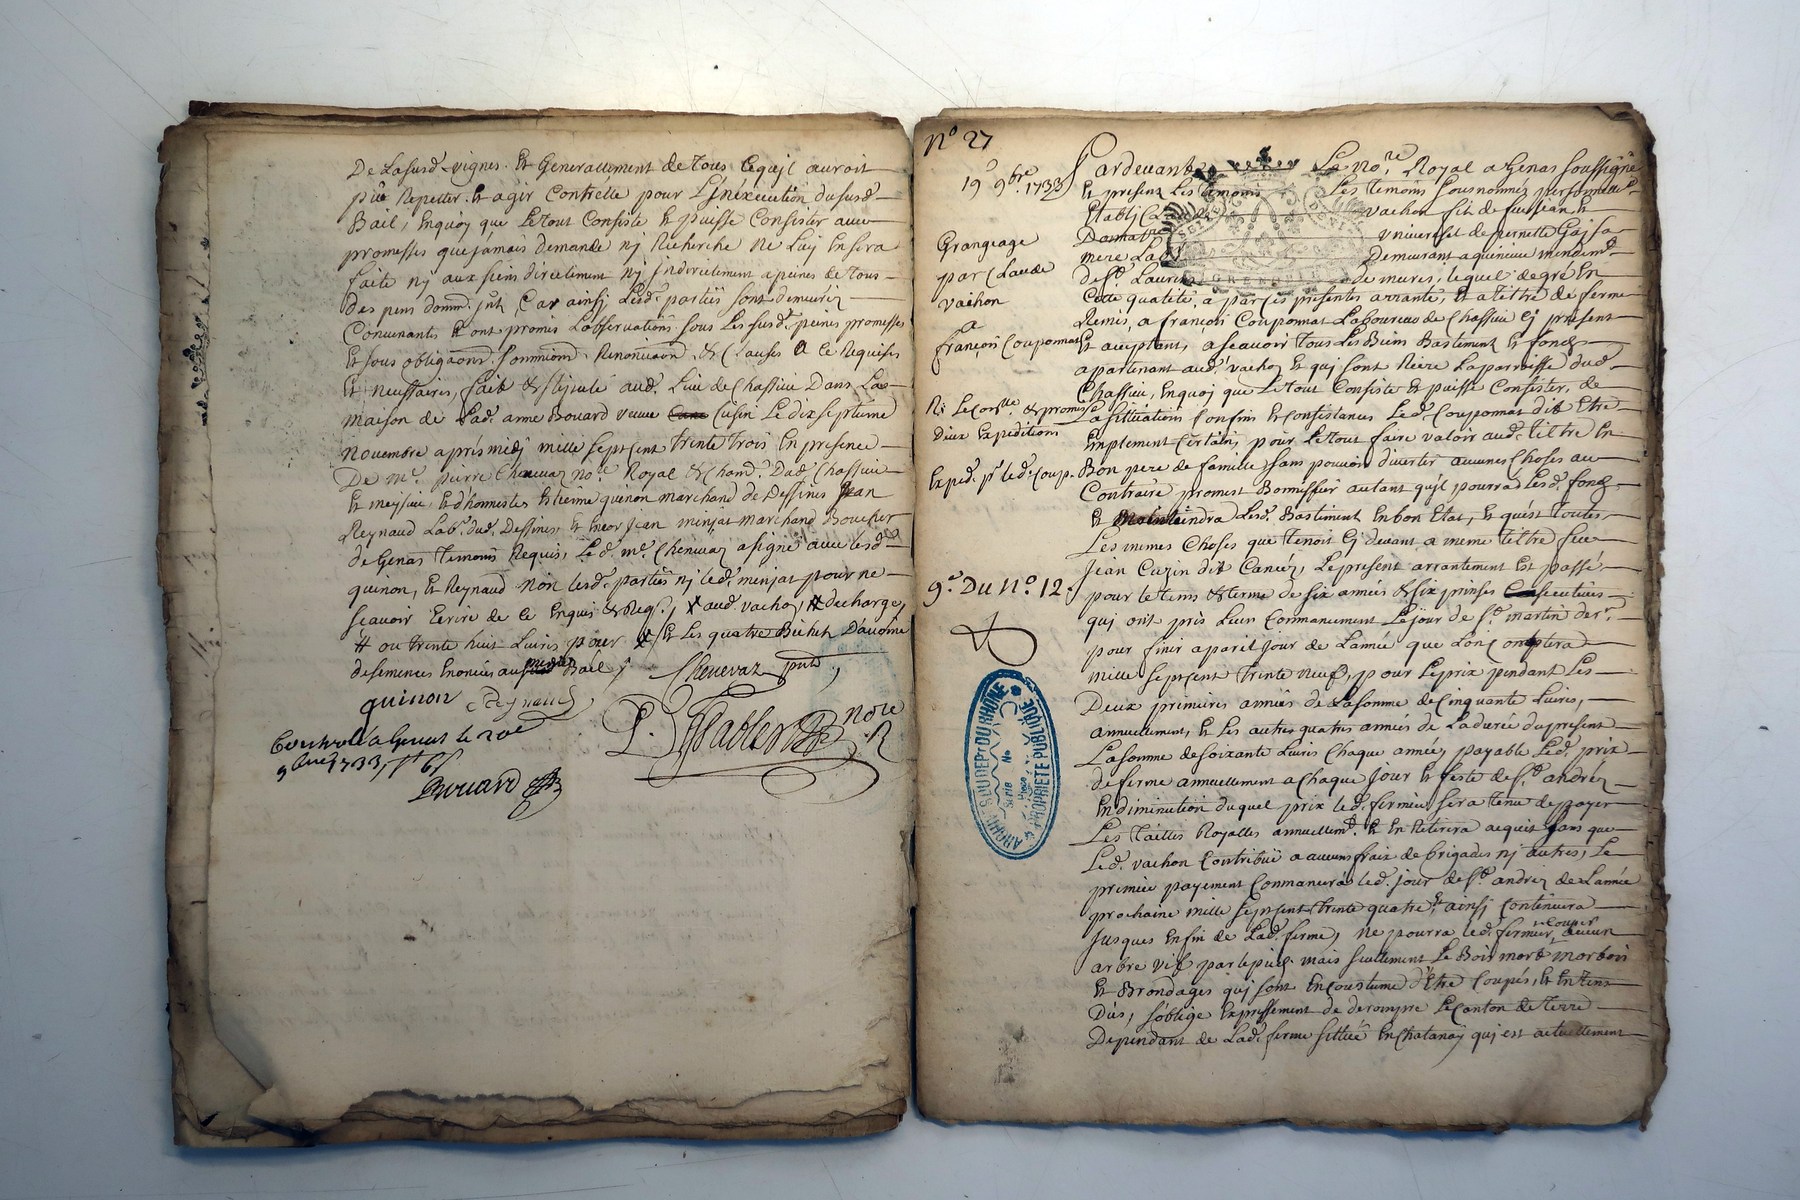 De Lasusd. vignes. Et Generallement de Tous Cequjl auroit
pûe Repetter. Et agir Contrelle pour L'inéxecution dususd.
Bail, Enquoy que Letout Consiste Et puisse Consister avec
promesses quejamais demande nj Recherche Ne Luy En sera
faite nj aux siens directement nj Jndirectement apeines de Tous
Des pens domm. jnts, Car ainsj Lesd. parties sont demeurés
Convenants Et ont promis Lobservations sous Les susd. peines promesses
Et sous obligaôns. soumissions. Renonciaôn. & Clauses A Ce Requises
Et Neussaires, fait & stipulé aud. Lieu de Chassieu Dans La
maison de Lad. anne Bouard veuve Cusin Le dix septieme
Novembre aprésmidj mille sept cent trente Trois En presence
De me. pierre Chenevaz no.re Royal & Chatel. Dud. Chassieu
Et messieu Ed'honnestes Estienne quinon marchand de Dessines Jean
Reynaud Lab.r dud. Dessines Et Encor Jean minjat marchand Boucher
de Genas Temoins Requis, Led. me. Chenevaz a signé avec lesd.
quinon, Et Reynaud Non lesd. parties nj led. minjat pour ne
scavoir Ecrire de ce Enquis & Req.s, aud. vachoy decharge,
ou trente huit Livres pour Et Les quatre Bichet D'avoine
de semences Enoncées au susd. Bail,
Chenevaz pnt,
quinon Reynaud
P. Sablier nore R
Controllé a Genas le 20e
9bre 1733,
Brouard
N.o 27
19e 9bre. 1733
Grangeage
par Claude
vachon
a
françois Couponnat
Ni Lecoste. & promis
Deux Expeditions
Exped. pr led. Coup.
9.e Du N.o 12.
ARCH. DU DEP.T DU RHÔNE
Serie No
Piece
PROPRIETE PUBLIQUE
Pardevant Le No.re Royal a Genas soussigné
Et presens Les Temoins Les Temoins sousnommés personnelle
Etablj Claude vachon fils de feu jean Et
Donnataire Universel de pernette Gassa
mere Lab. Demeurant a quinieux mendem.t
de St. Laurent de mures, lequel degré En
Cette qualité, a par ces presentes arranté, Et a tiltre de ferme
Remis, a françois Couponnat Laboureur de Chassieu Cj present
Et acceptant, a scavoir Tous Les Biens Bastiment Et fonds
apartenant aud. vachoy Et quj sont Riere La parroisse dud.
Chassieu, Enquoy que Letout Consiste Et puisse Consister, de
La sittuations Confins Et Consistances Led. Couponnat dit Etre
Emplement Certain, pour Letout faire valoir aud. tiltre En
Bon pere de famille sans pouvoir divertir aucunes Choses au
Contraire promest Bonniffier autant qu'jl pourra Lesd. fonds
Et Maintiendra Lesd. Bastiment En bon Etat, Et quest Toutes
Les memes Choses que Tenoit Cj devant a meme tiltre feu
Jean Cuzin dit Canier, Le present arrantement Et passé
pour le tems & terme de six années & six prinses Consecutives
quj ont pris Leur Commancement Le jour de St. martin der.r
pour finir a pareil jour de L'année que L'on Comptera
mille sept cent trente Neuf, pour Le prix pendant Les
Deux premieres années de La somme de Cinquante Livres,
annuellement, Et Les autres quatre années de La durée du present
La somme de soixante Livres Chaque année, payable Led. prix
de ferme annuellement a Chaque Jour Et feste de St. andréz
En diminution duquel prix Led. fermier sera tenu de payer
Les Tailles Royalles annuellem.t Et En Retirera acquit sans que
Led. vachon Contribuë a aucuns frais de brigades nj autres, Le
premier payement Commancera led. jour de St. andréz de L'année
prochaine mille sept cent trente quatre, Et ainsj Continuera
Jusques En fin de Lad. ferme, ne pourra led. fermier Couper aucun
arbre vif par le pied. mais seullement Le Bois mort morbois
Et Brondages quj sont En Coustume d'Etre Coupés, Et En Tems
Dus, s'oblige Expressement de derompre Le Canton de Terre
Dependant de Lad. ferme sittué En Chatanay quj est actuellement